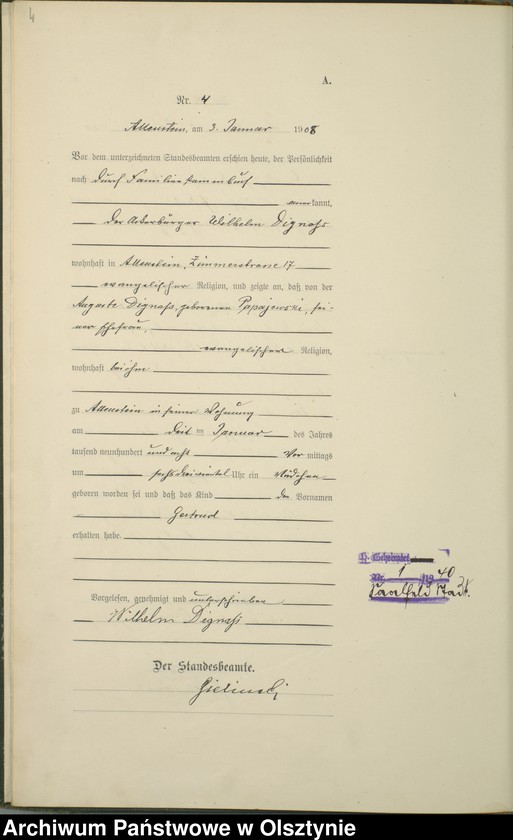 4
A.
Nr. 4
Allenstein, am 3. Januar 1908
Vor dem unterzeichneten Standesbeamten erschien heute, der Persönlichkeit
nach durch Familienstammbuch
kannt,
der Ackerbürger Wilhelm Dignaß
wohnhaft in Allenstein, Zimmerstrasse 17
evangelischer Religion, und zeigte an, daß von der
Auguste Dignaß, geborenen Papajewski, sei-
ner Ehefrau,
evangelischer Religion,
wohnhaft bei ihm
zu Allenstein in seiner Wohnung
am im Januar des Jahres
tausend neunhundert und acht Vor mittags
um sechs dreiviertel Uhr ein Mädchen
geboren worden sei und daß das Kind den Vornamen
Gertrud
erhalten habe.
Vorgelesen, genehmigt und unterschrieben
Wilhelm Dignaß
Der Standesbeamte.
Nr. 1 /1940
Saalfeld
Archiwum Państwowe w Olsztynie